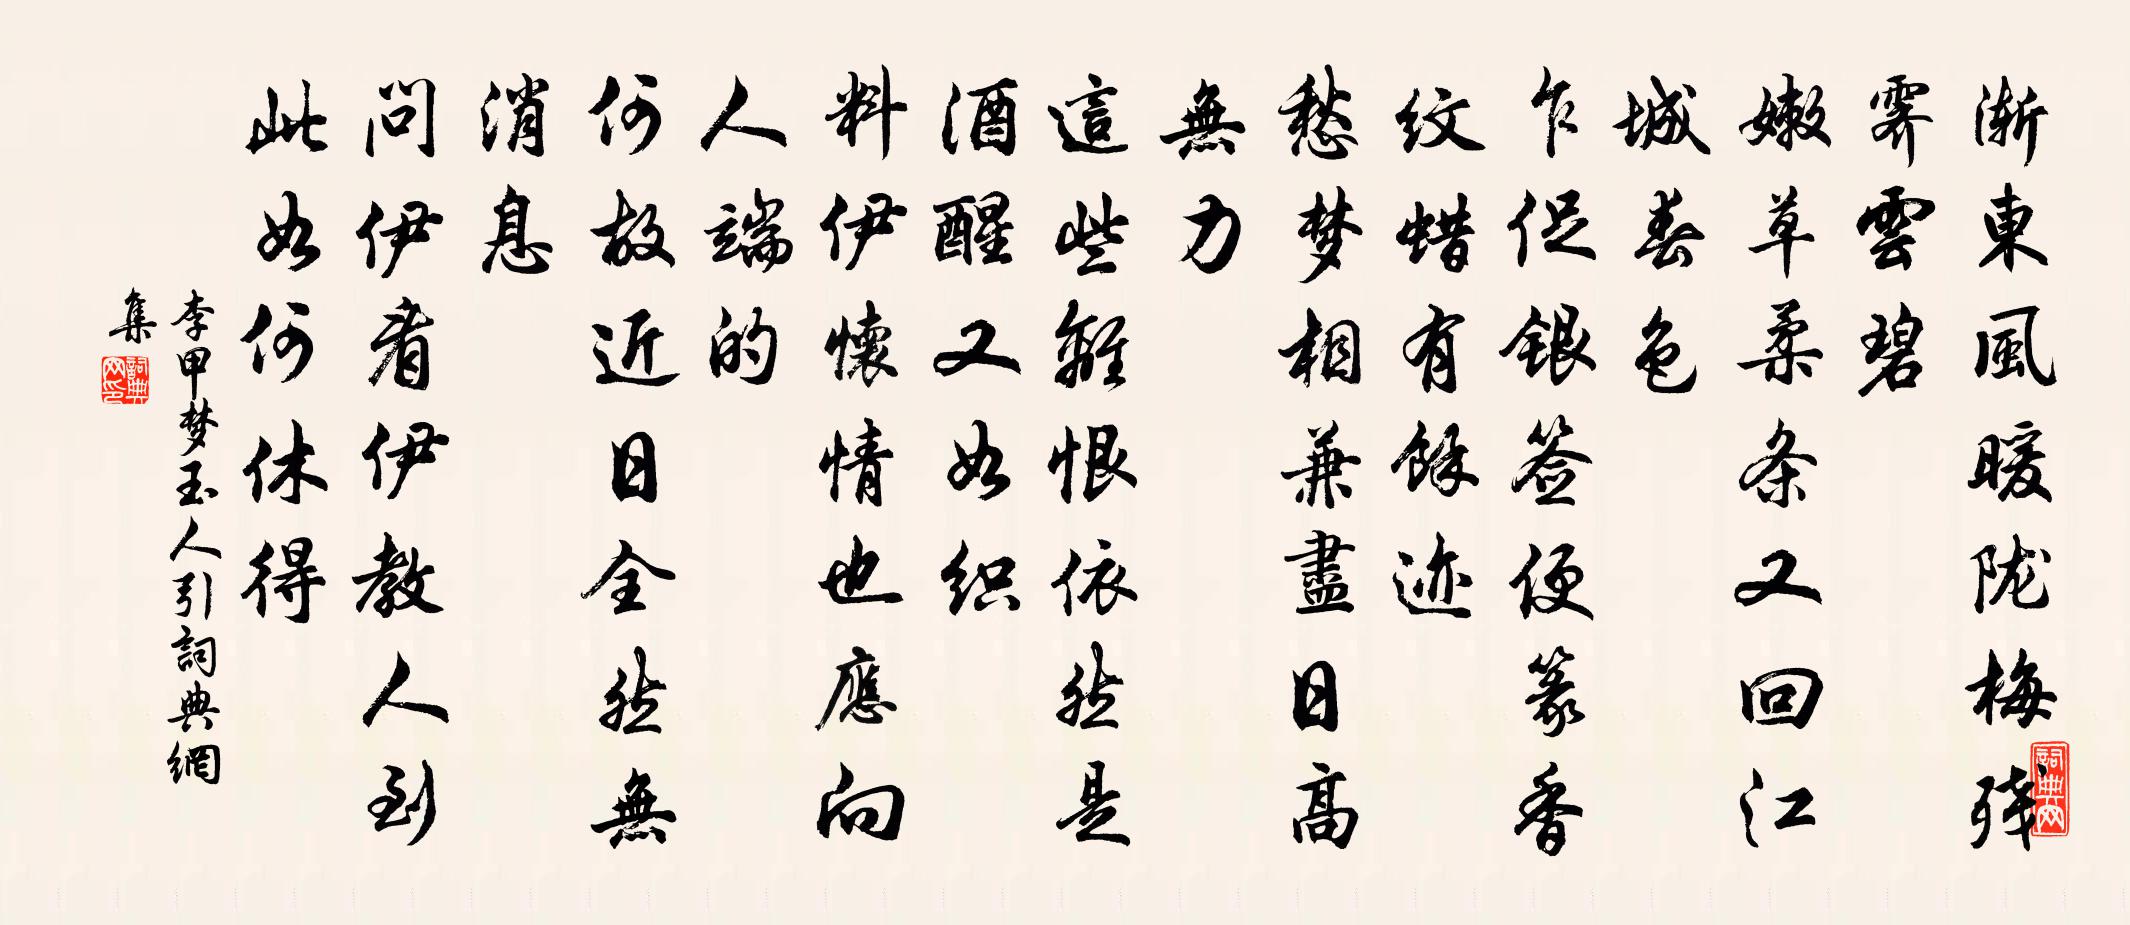 漸東風暖陇梅残
霁雲碧
嫩草柔条又回江
城春色
乍促銀签便篆香
纹蜡有餘迹
愁梦相兼盡日高
無力
這些離恨依然是
酒醒又如织
料伊懷情也應向
人端的
何故近日全然無
消息
問伊看伊教人到
此如何休得
李甲梦玉人引詞典網
集
詞典网
詞典网印